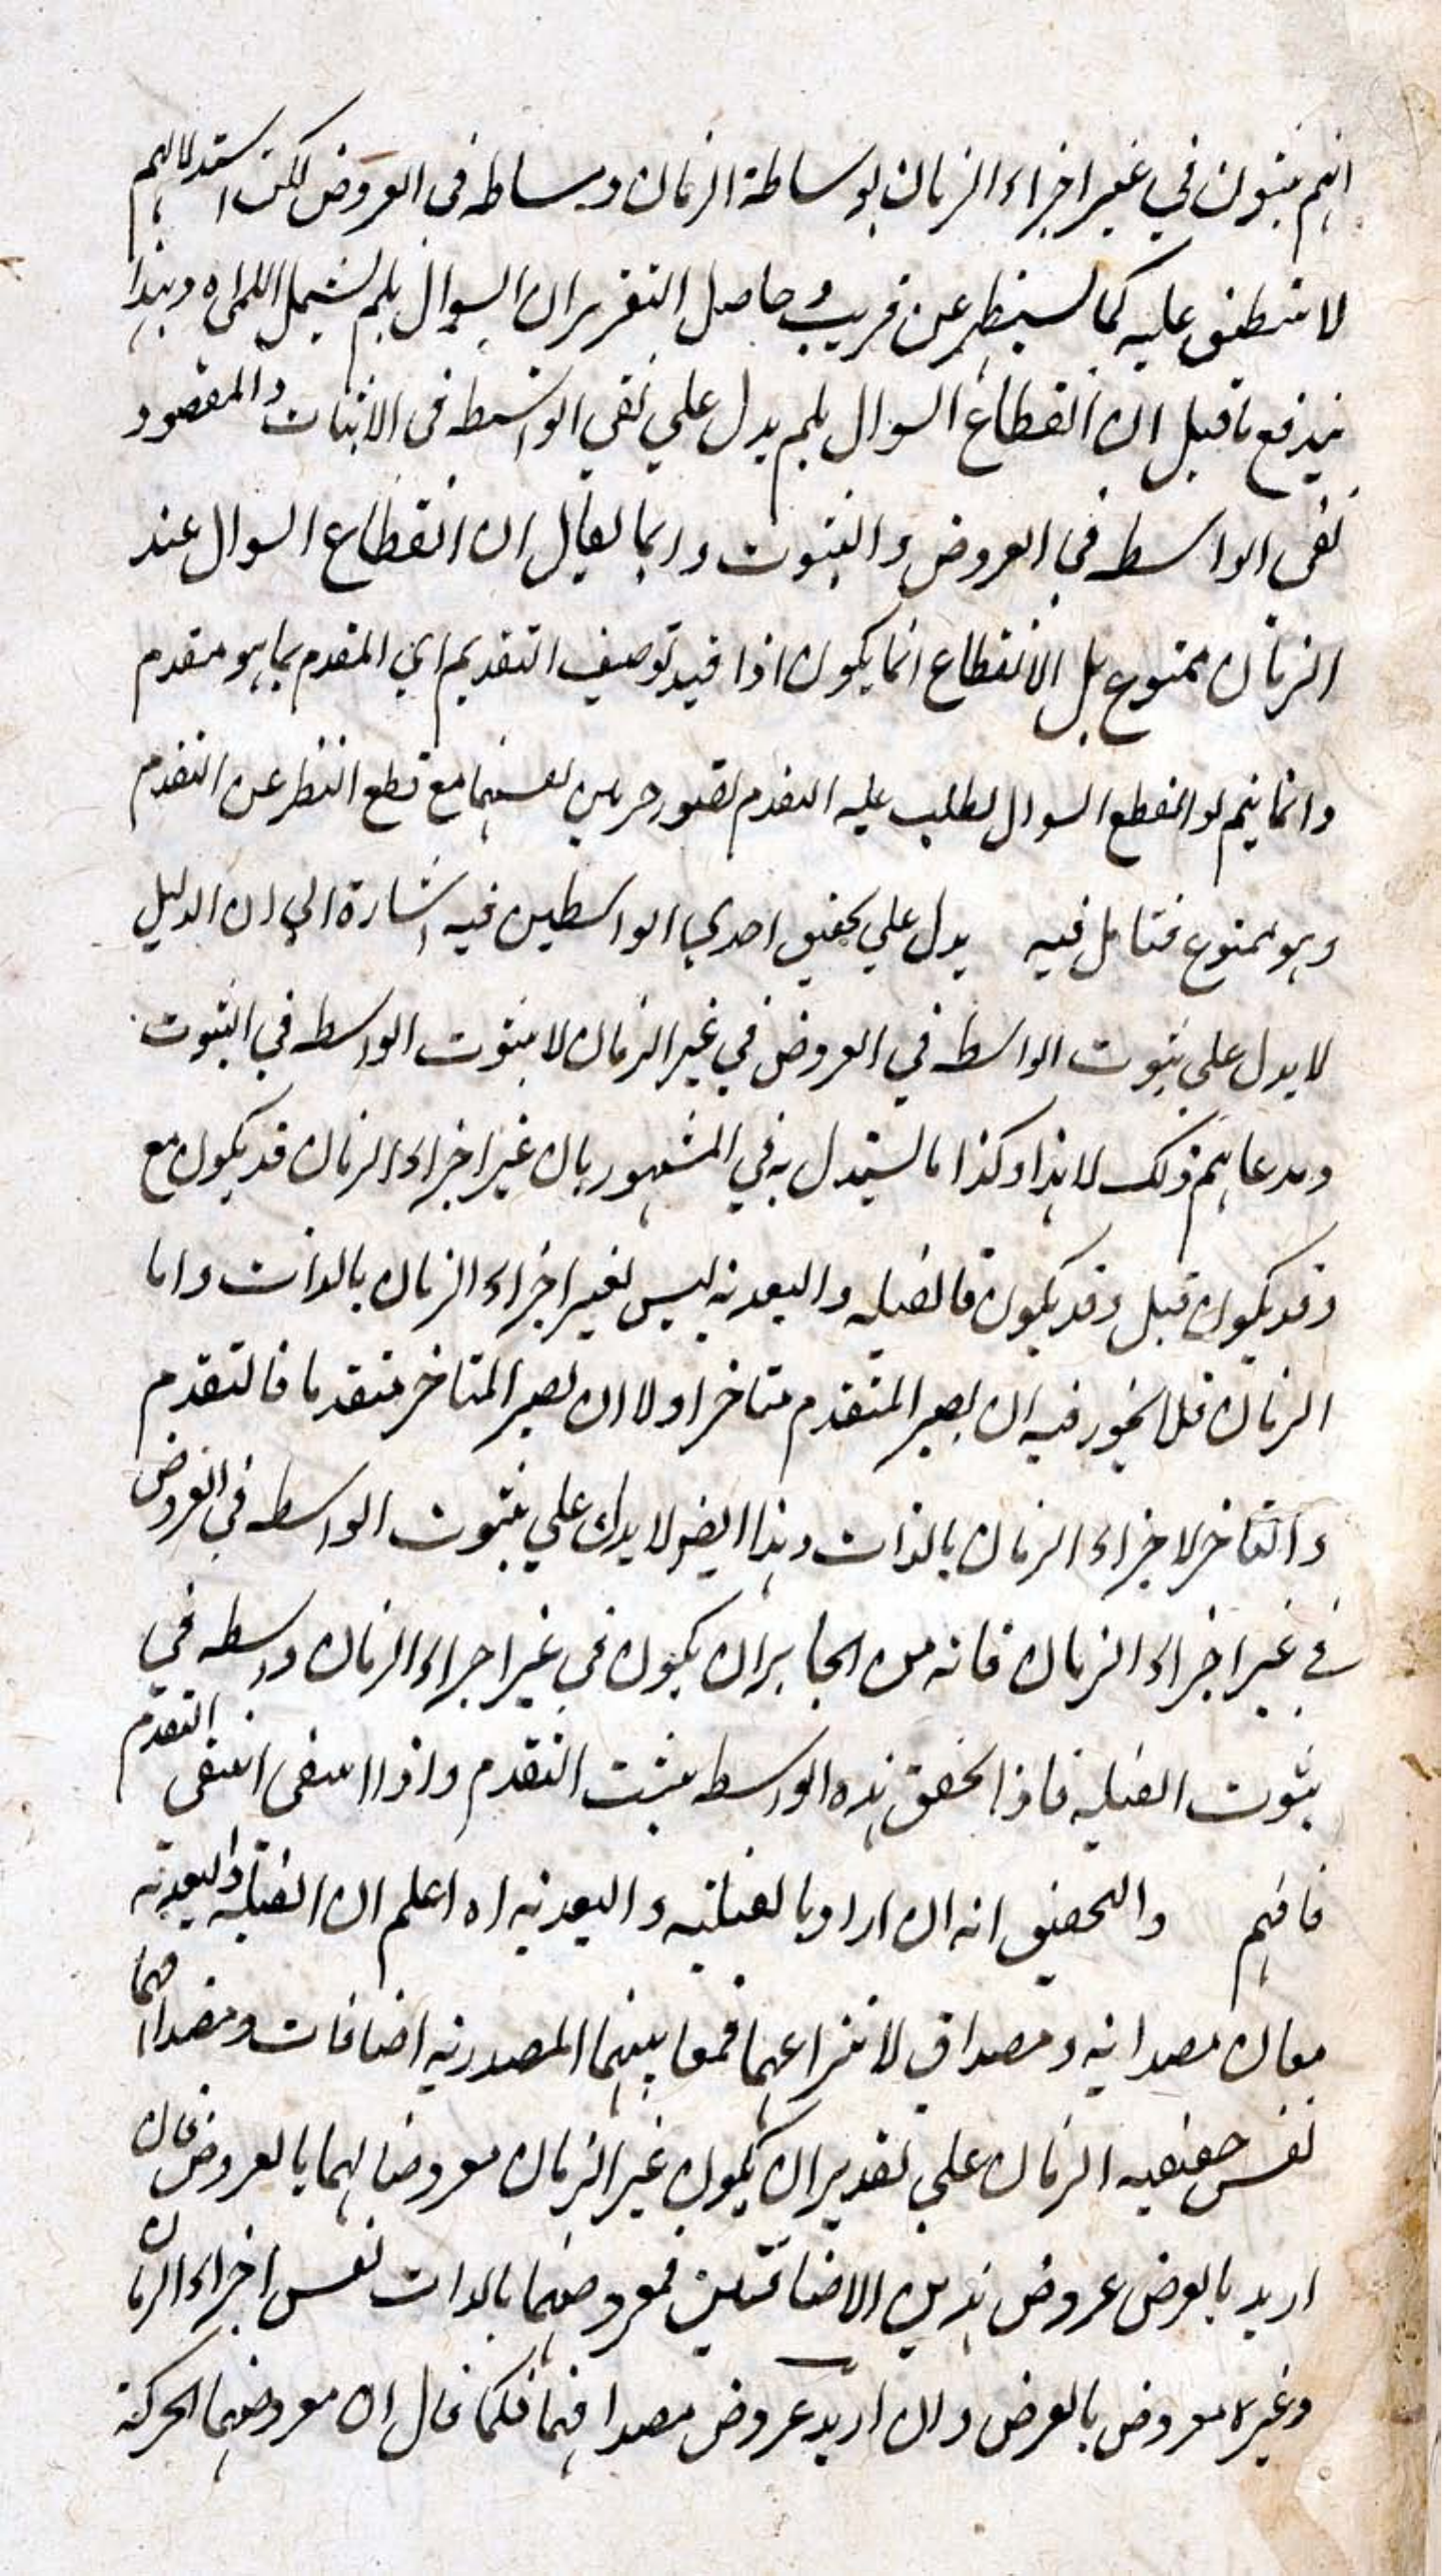 انهم يثبتون في غير اجزاء الزمان بوساطة الزمان وساطه في العروض لكن استدلالهم
لا ينطبق عليه كما سينظهر عن قريب و حاصل التقرير ان السوال بلم يشمل اللم اه وبهذا
يندفع ما قيل ان انقطاع السوال بلم يدل علي نفي الواسطه في الاثبات والمقصود
نفى الواسطه في العروض والثبوت وربما يقال ان انقطاع السوال عند
الزمان ممنوع بل الانقطاع انما يكون اذا قيد توصيف التقديم اي المقدم بما هو مقدم
وانما يتم لو انقطع السوال لطلب عليه التقدم لتصور نفسهما مع قطع النظر عن التقدم
وهو ممنوع فتامل فيه يدل علي تحقيق احدي الواسطين فيه اشارة الي ان الدليل
لا يدل علي ثبوت الواسطه في العروض في غير الزمان لا بثبوت الواسطه في الثبوت
ومدعاهم ذلك لا هذا وكذا ما يستدل به في المشهور بان غير اجزاء الزمان قد يكون مع
وقد يكون قبل وقد يكون فالقبليه والبعديه ليس لغير اجزاء الزمان بالذات واما
الزمان فلا يجوز فيه ان يصير المتقدم متاخرا ولا ان يصير المتاخر متقدما فالتقدم
والتاخر لاجزاء الزمان بالذات وهذا ايضا لا يدل علي ثبوت الواسطه في العروض
في غير اجزاء الزمان فانه من الجايز ان يكون في غير اجزاء الزمان واسطه في
ثبوت القبليه فاذا تحقق هذه الواسطه يثبت التقدم واذا انتفى انتفى التقدم
فافهم والتحقيق انه ان اراد بالقبليه والبعديه اه اعلم ان القبليه والبعديه
معان مصدريه ومصداق لانتزاعهما فمعانيهما المصدريه اضافات ومصداقهما
نفس حقيقيه الزمان علي تقدير ان يكون غير الزمان معروضا لهما بالعروض فان
اريد بالعرض عروض هذين الاضافتين فمعروضهما بالذات نفس اجزاء الزمان
وغيره معروض بالعرض وان اريد عروض مصداقهما فكما قال ان معروضهما الحركة